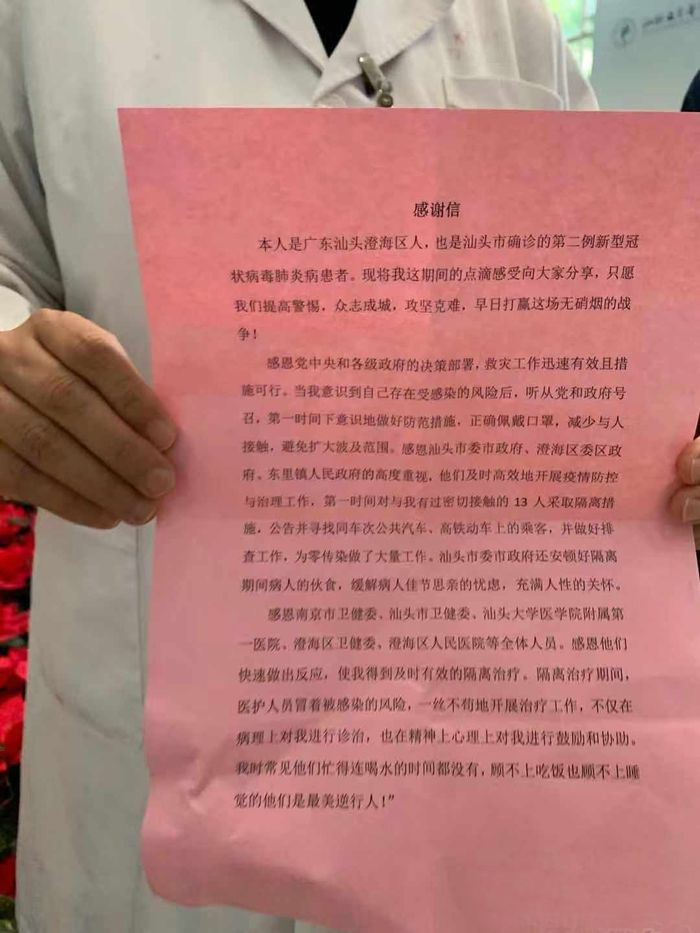 感谢信
本人是广东汕头澄海区人，也是汕头市确诊的第二例新型冠
状病毒肺炎病患者。现将我这期间的点滴感受向大家分享，只愿
我们提高警惕，众志成城，攻坚克难，早日打赢这场无硝烟的战
争！
感恩党中央和各级政府的决策部署，救灾工作迅速有效且措
施可行。当我意识到自己存在受感染的风险后，听从党和政府号
召，第一时间下意识地做好防范措施，正确佩戴口罩，减少与人
接触，避免扩大波及范围。感恩汕头市委市政府、澄海区委区政
府、东里镇人民政府的高度重视，他们及时高效地开展疫情防控
与治理工作，第一时间对与我有过密切接触的 13 人采取隔离措
施，公告并寻找同车次公共汽车、高铁动车上的乘客，并做好排
查工作，为零传染做了大量工作。汕头市委市政府还安顿好隔离
期间病人的伙食，缓解病人佳节思亲的忧虑，充满人性的关怀。
感恩南京市卫健委、汕头市卫健委、汕头大学医学院附属第
一医院、澄海区卫健委、澄海区人民医院等全体人员。感恩他们
快速做出反应，使我得到及时有效的隔离治疗。隔离治疗期间，
医护人员冒着被感染的风险，一丝不苟地开展治疗工作，不仅在
病理上对我进行诊治，也在精神上心理上对我进行鼓励和协助。
我时常见他们忙得连喝水的时间都没有，顾不上吃饭也顾不上睡
觉的他们是最美逆行人！”